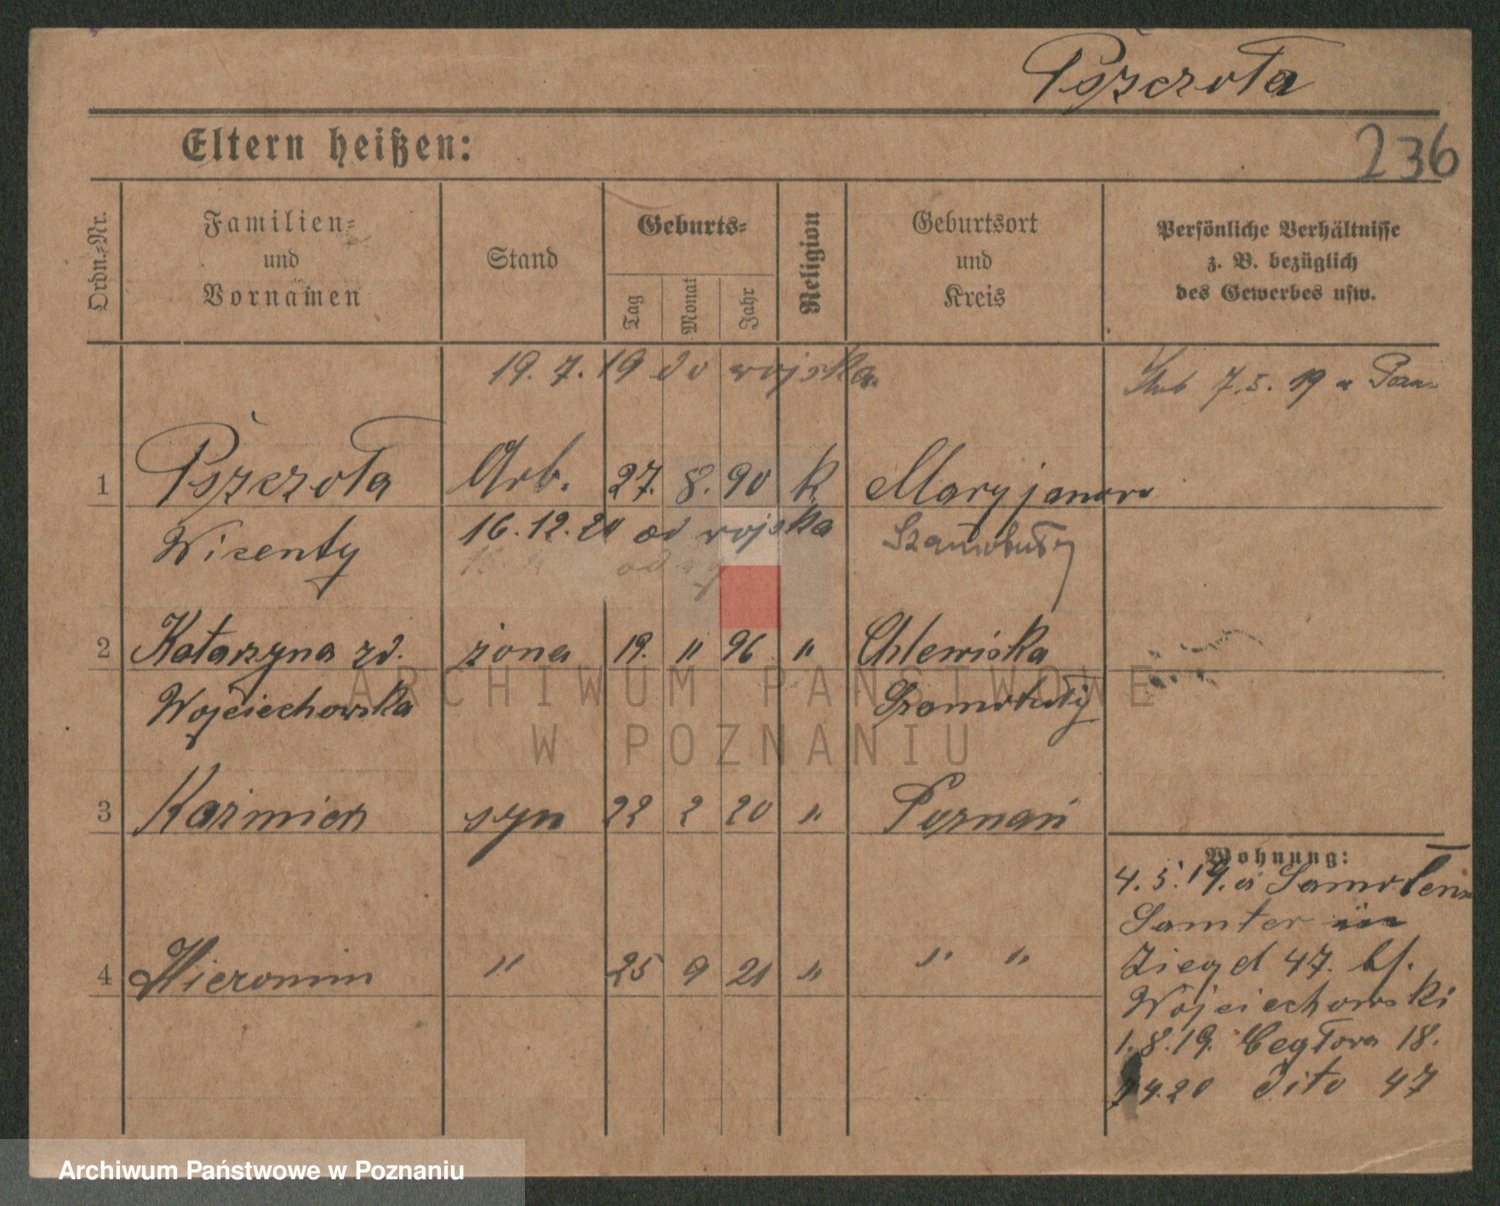 Pszczoła
236
Eltern heißen:
Ordn.-Nr.
Familien-
und
Vornamen
Stand
Geburts-
Tag
Monat
Jahr
Religion
Geburtsort
und
Kreis
Persönliche Verhältnisse
z. B. bezüglich
des Gewerbes usw.
19. 7. 19 do wojska
7. 5. 19
1 Pszczoła Arb. 27. 8. 90 K. Maryjanowo
Wicenty 16. 12. 20 od wojska Szamotuły
2 Katarzyna zd. żona 19. " 96 " Chlewiska
Wojciechowska Szamotuły
3 Kazmierz syn 22 2 20 " Poznań
4 Hieronim " 25 9 21 " " "
Wohnung:
4. 5. 19. a
Samter
Ziegel 47. bf.
Wojciechowski
1. 8. 19. 18.
4. 20 dito 47
ARCHIWUM PAŃSTWOWE
W POZNANIU
Archiwum Państwowe w Poznaniu